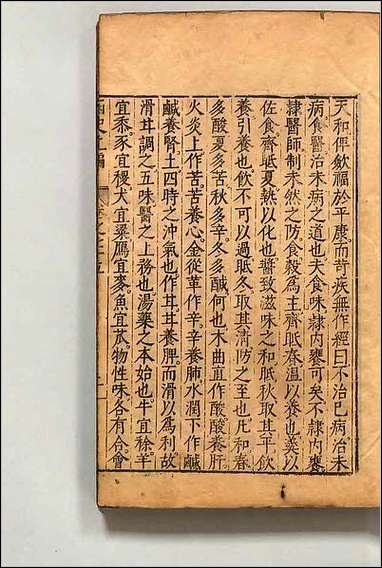 天和俾飲福於平康而苛疾無作經曰不治已病治未
病食醫治未病之道也夫食味隸内饔可矣不隸内饔
隸醫師制未然之防食穀為主齊眂春温以養也羹以
佐食齊眂夏熱以化也醬致滋味之和眂秋取其平飲
養引養也飲不可以過眂冬取其清防之至也凡和春
多酸夏多苦秋多辛冬多鹹何也木曲直作酸酸養肝
火炎上作苦苦養心金從革作辛辛養肺水潤下作鹹
鹹養腎土四時之沖氣也作甘甘養脾而滑以為利故
滑甘調之五味醫之上務也湯藥之本始也牛宜稌羊
宜黍豕宜稷犬宜粱鴈宜麥魚宜苽物性味各有合會
函史上編